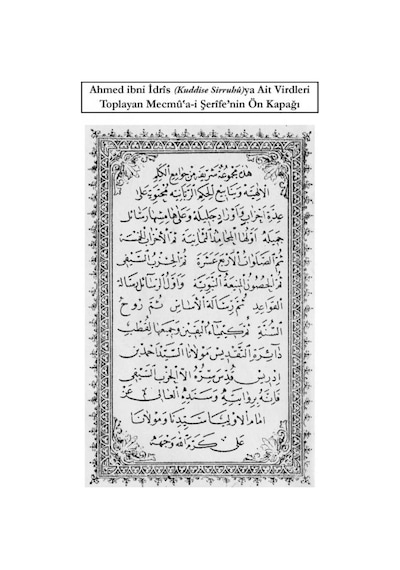 Ahmed ibni İdrîs (Kuddise Sirruhû)ya Ait Virdleri
Toplayan Mecmû‘a-i Şerîfe’nin Ön Kapağı
هذه مجموعة شريفة من جوامع الكلم
الالهية وينابيع الحكم الربانية محتوية على
عدة احزاب واوراد جليلة وعلى رسائل
جميلة اولها المحامد الثمانية ثم الاحزاب الخمسة
ثم الصلوات الاربع عشرة ثم الحزب السيفى
ثم الحصون المنيعة النبوية واول الرسائل رسالة
القواعد ثم رسالة الاساس ثم روح
السنة ثم كيمياء اليقين وجميعها لقطب
دائرة التقديس مولانا السيد احمد بن
ادريس قدس سره الا الحزب السيفى
فانه بروايته وسنده العالى عن
امام الاوليا سيدنا ومولانا
على كرم الله وجهه